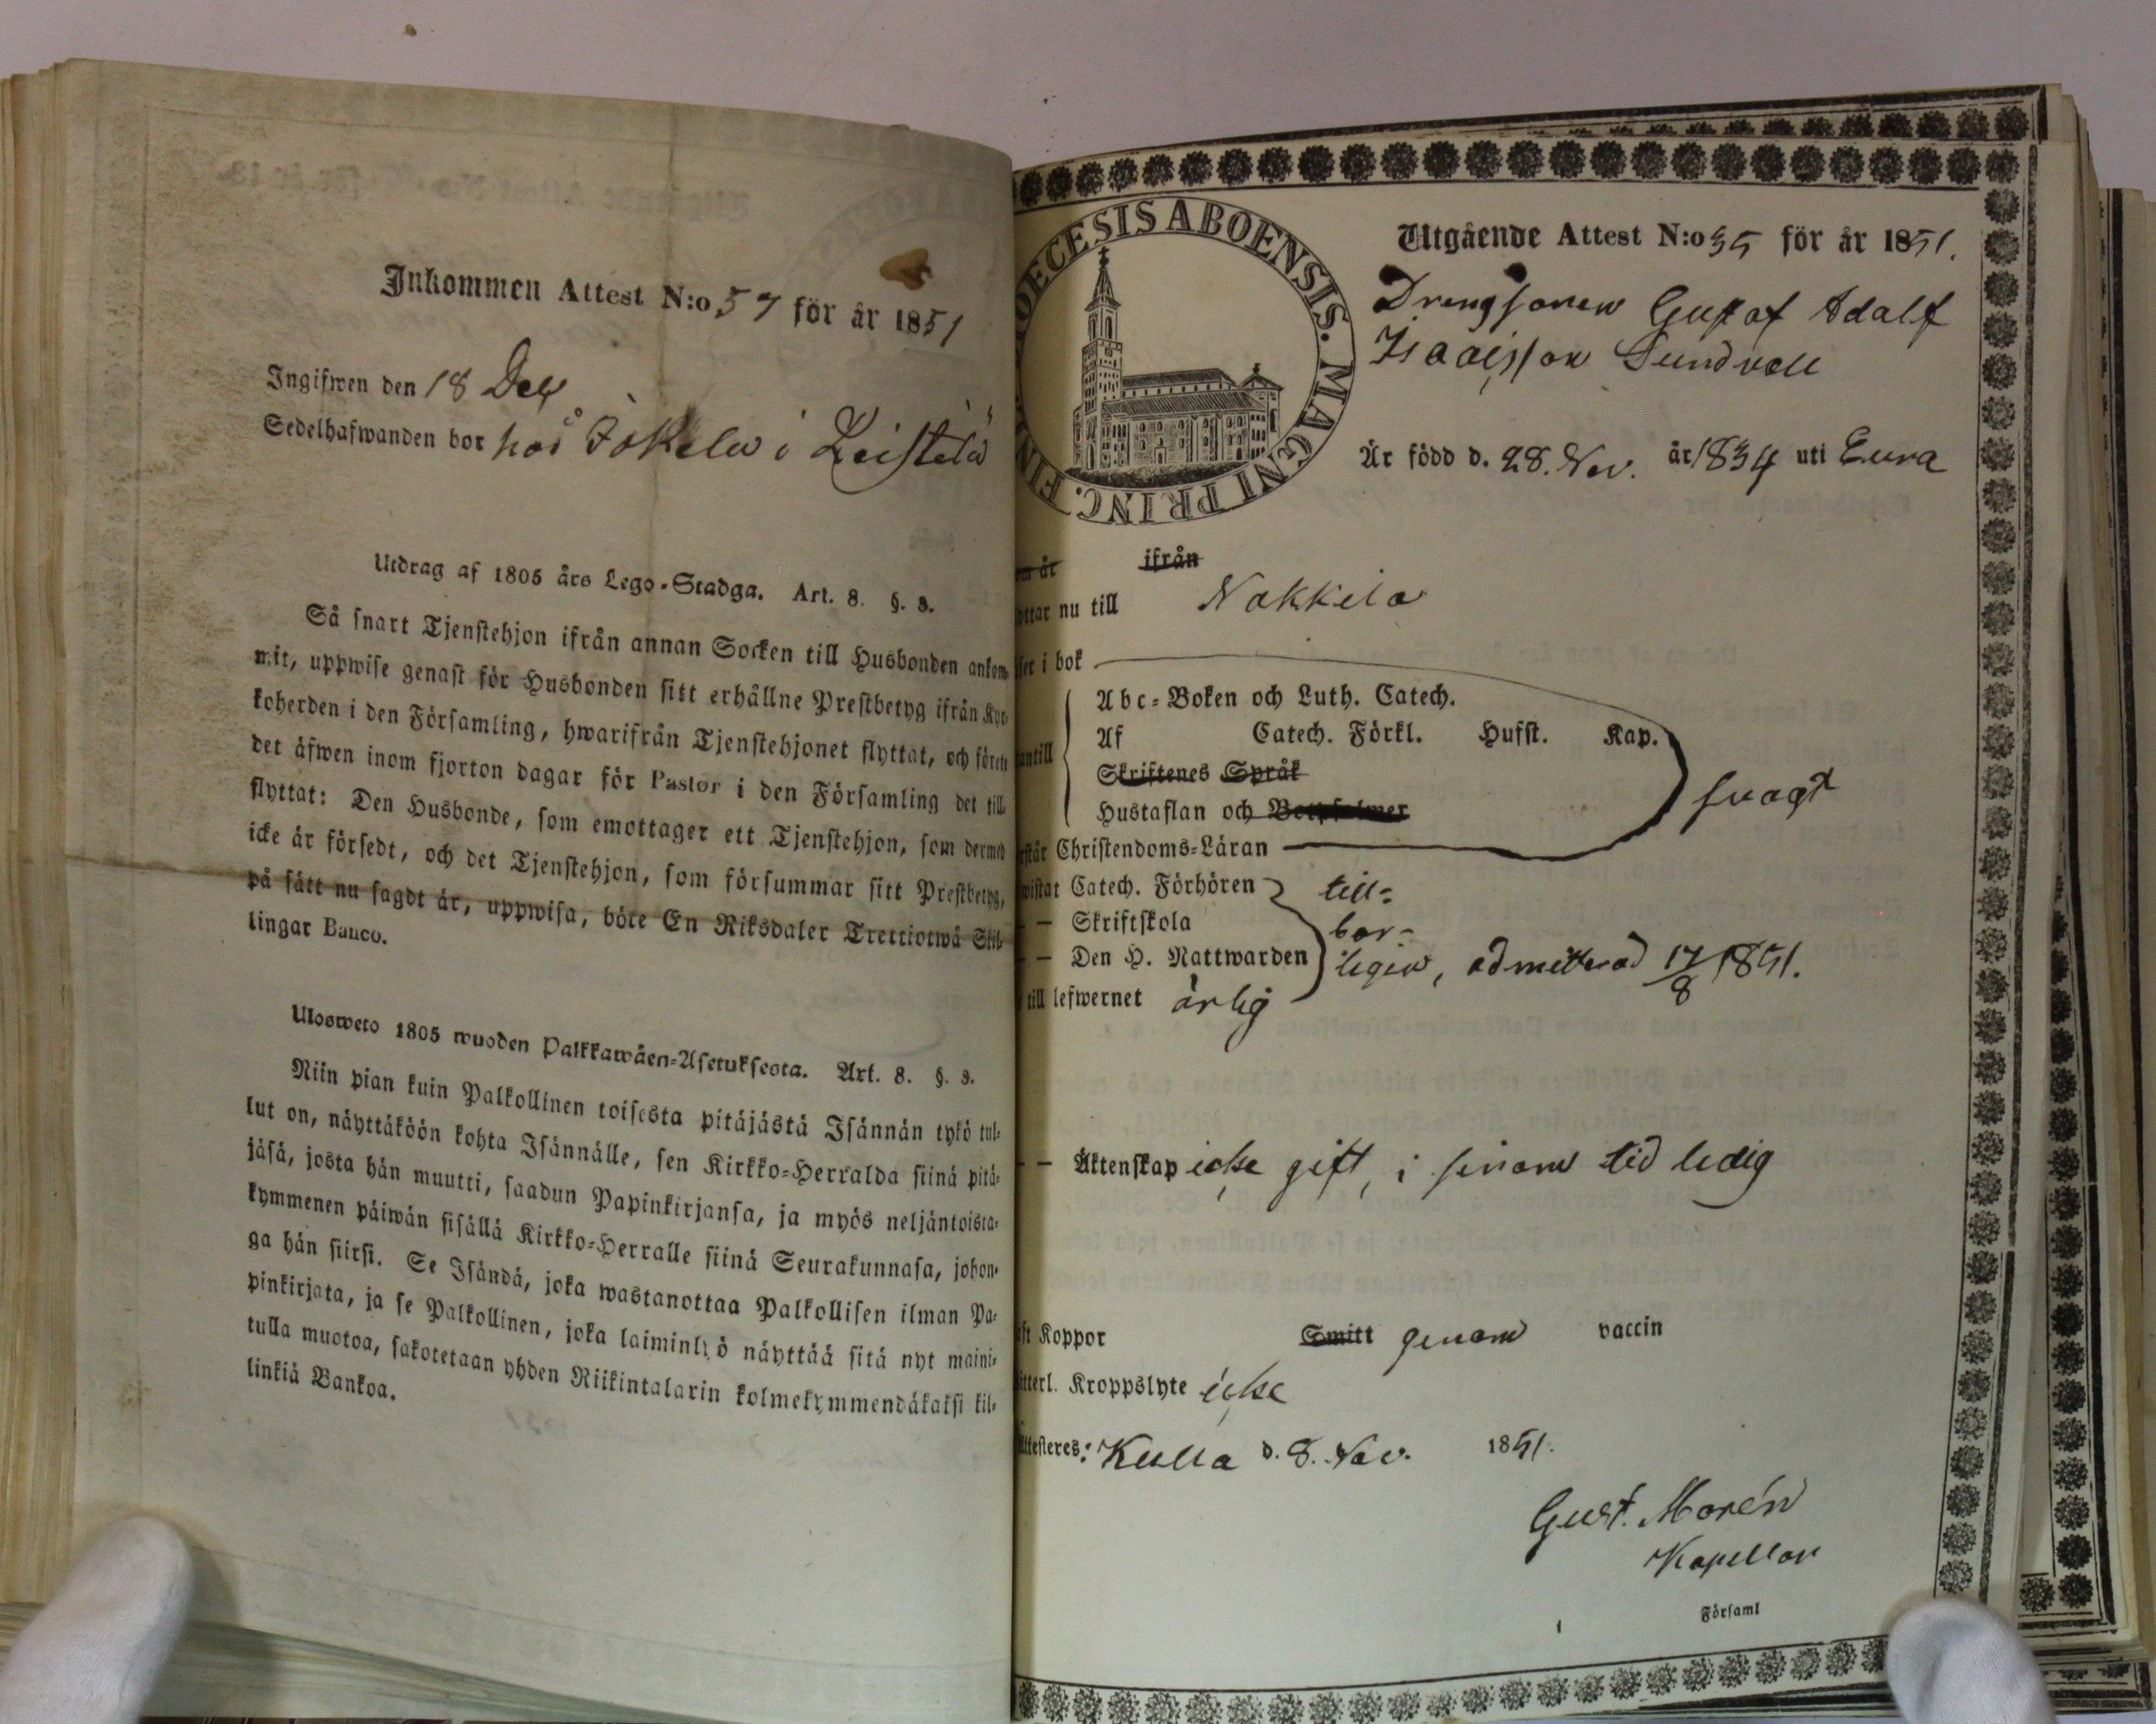 Inkommen Attest N:o 57 för år 1851
Ingifwen den 18 Dec
Sedelhafwanden bor hos Jokela i Leistelä
Utdrag af 1805 års Lego-Stadga. Art. 8. §. 3.
Så snart Tjenstehjon ifrån annan Socken till Husbonden ankom-
mit, uppwise genast för Husbonden sitt erhållne Prestbetyg ifrån Kyr-
koherden i den Församling, hwarifrån Tjenstehjonet flyttat, och förete
det äfwen inom fjorton dagar för Pastor i den Församling det till-
flyttat: Den Husbonde, som emottager ett Tjenstehjon, som dermed
icke är försedt, och det Tjenstehjon, som försummar sitt Prestbetyg,
på sätt nu sagdt är, uppwisa, böte En Riksdaler Trettiotwå Skil-
lingar Banco.
Ulosweto 1805 wuoden Palkkawäen-Asetuksesta. Art. 8. §. 3.
Niin pian kuin Palkollinen toisesta pitäjästä Isännän tykö tul-
lut on, näyttäköön kohta Isännälle, sen Kirkko-Herralda siinä pitä-
jäsä, josta hän muutti, saadun Papinkirjansa, ja myös neljäntoista-
kymmenen päiwän sisällä Kirkko-Herralle siinä Seurakunnasa, johon-
ga hän siirsi. Se Isändä, joka wastanottaa Palkollisen ilman Pa-
pinkirjata, ja se Palkollinen, joka laiminlyö näyttää sitä nyt maini-
tulla muotoa, sakotetaan yhden Riikintalarin kolmekymmendäkaksi kil-
linkiä Bankoa.
DIOECESIS ABOENSIS. MAGNI PRINC. FIN
Utgående Attest N:o 35 för år 1851.
Drengsonen Gustaf Adolf
Isaaksson Sundvall
Är född d. 28. Nov. år 1834 uti Eura
år ifrån
nu till Nakkila
i bok
Abc-Boken och Luth. Catech.
Af Catech. Förkl. Husst. Kap.
antill
Skriftenes Språk
svagt
Hustaflan och Botpsalmer
Christendoms-Läran
Catech. Förhören till=
— Skriftskola bör=
— Den H. Nattwarden ligen, admitterad 17/8 1851.
till lefwernet ärlig
— Äktenskap icke gift, i sinom tid ledig
Koppor Smitt genom vaccin
Kroppslyte icke
Attesteres: Kulla d. 8. Nov. 1851.
Gust. Morén
Kapellan
Församl